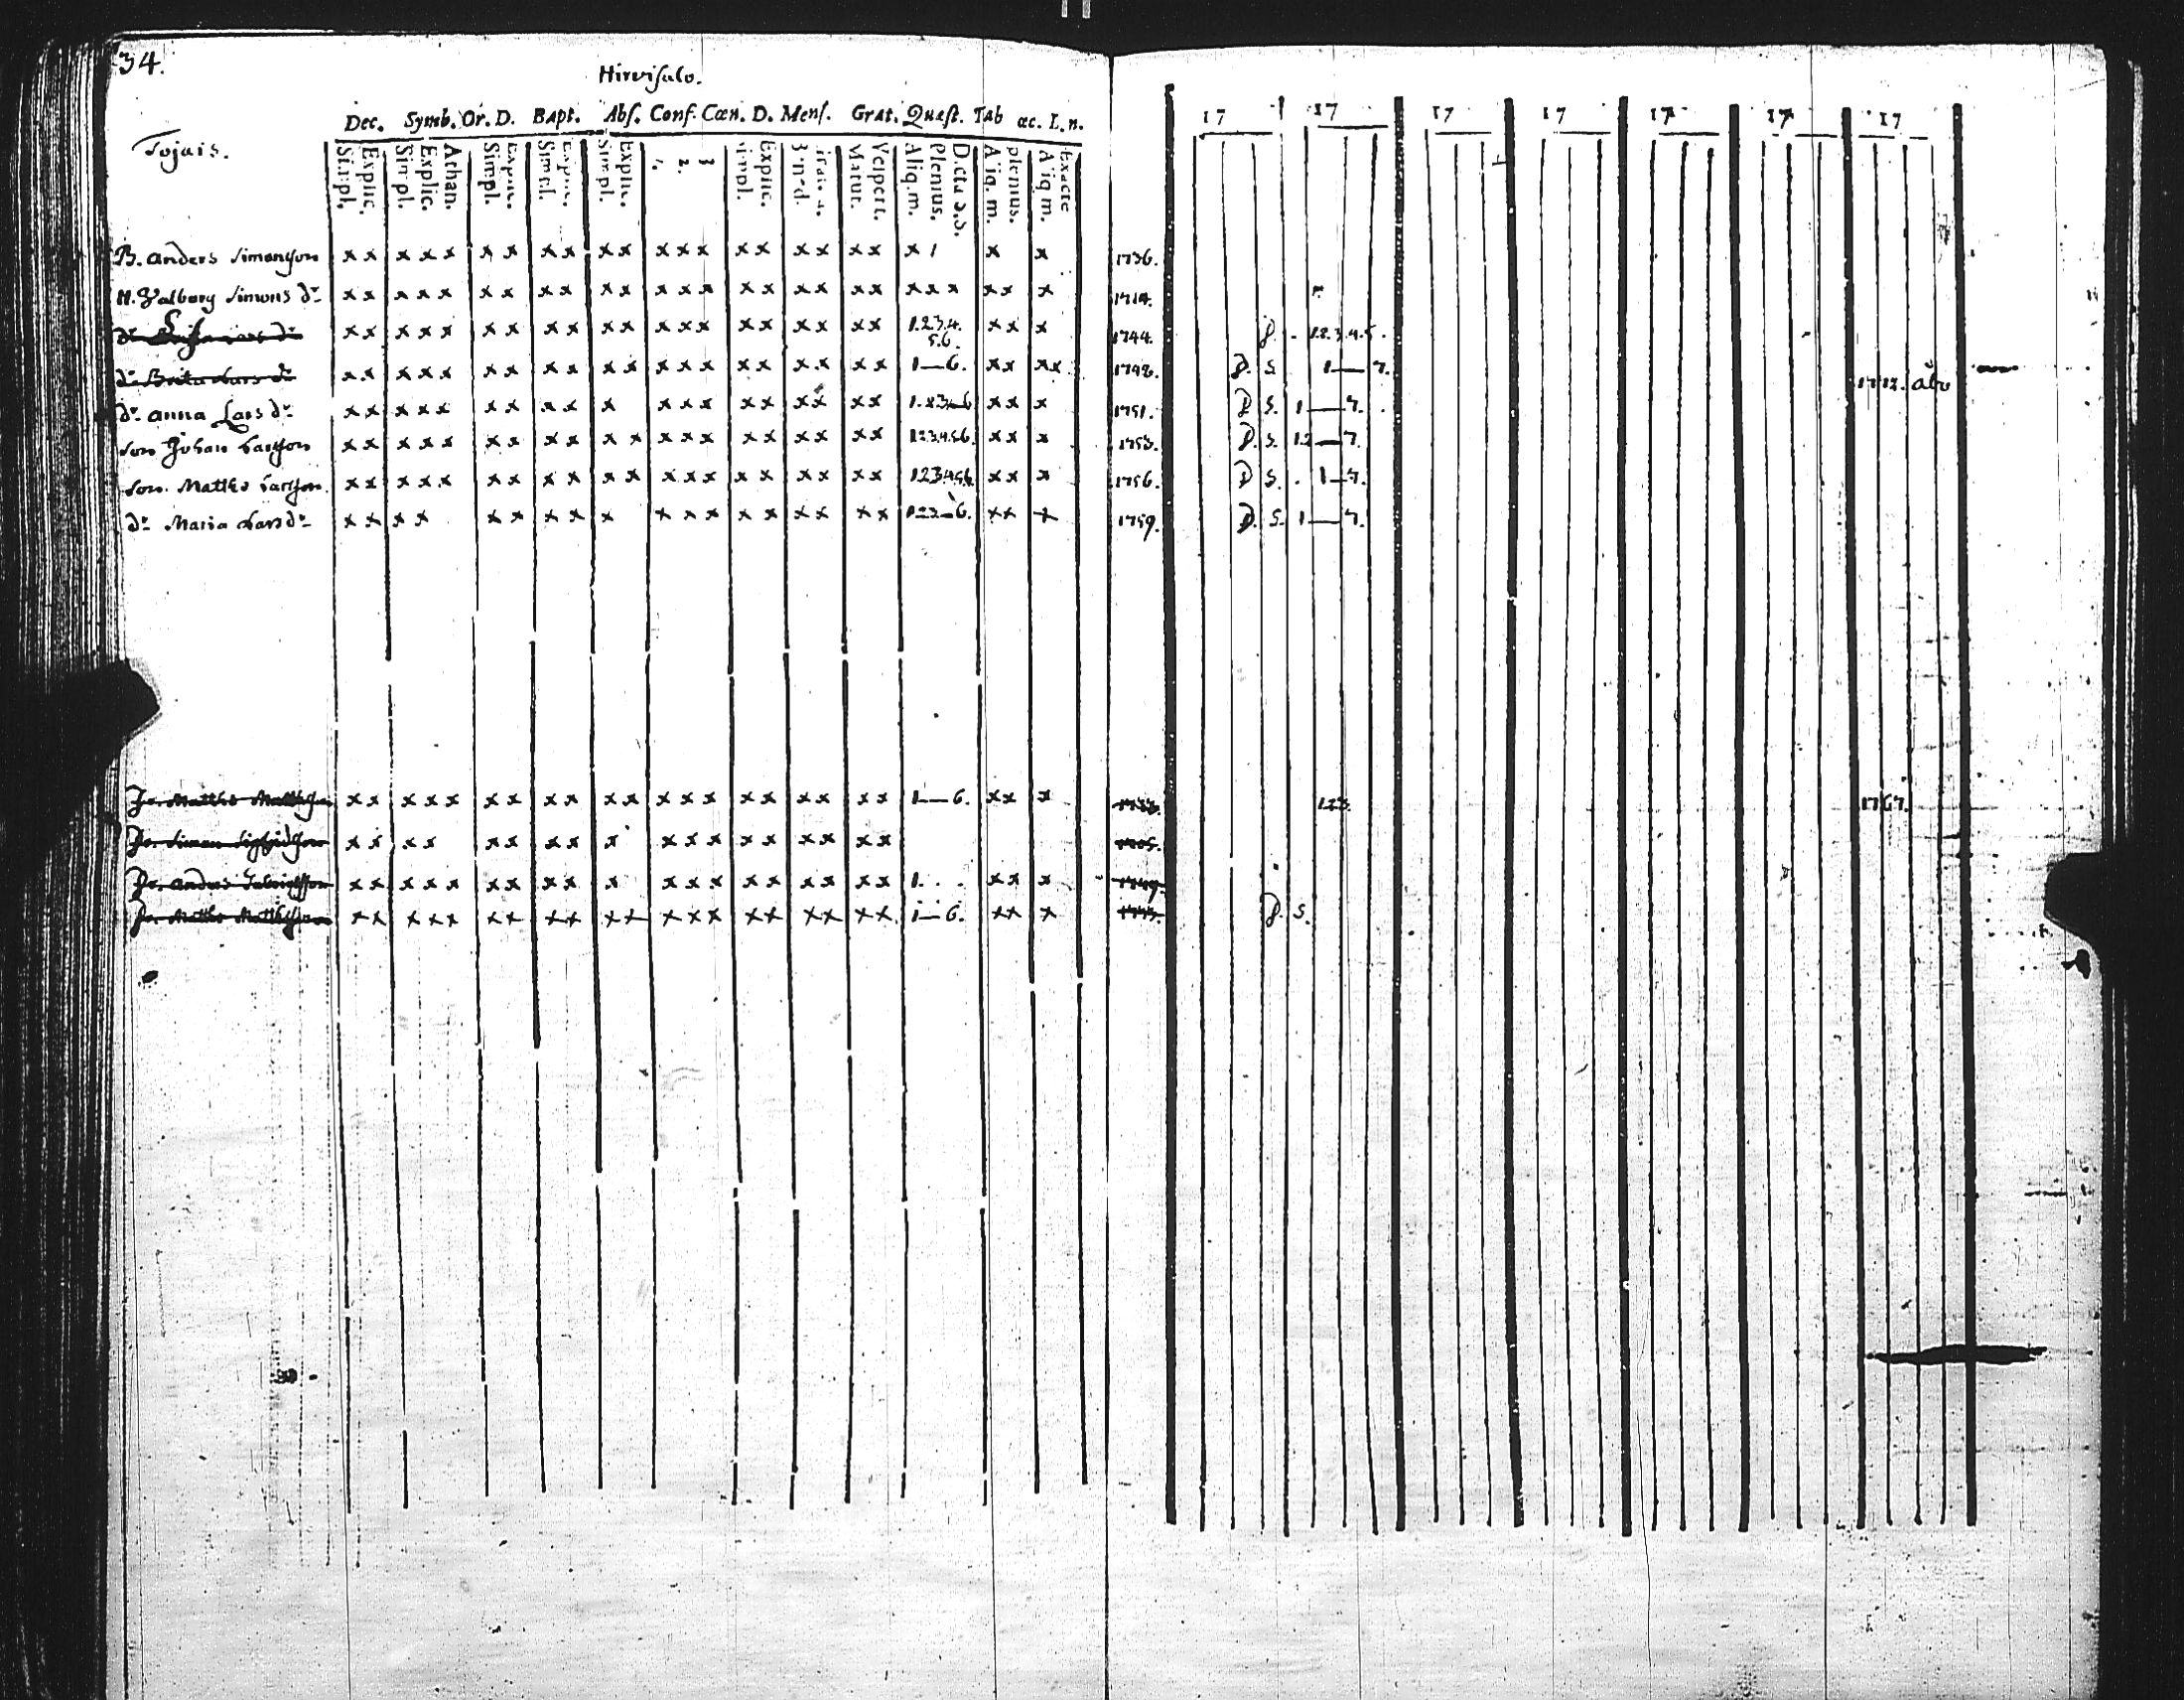 34.
Hirvisalo.
Dec. Symb. Or. D. Bapt. Abs. Conf. Cœn. D. Mens. Grat. Quæst. Tab œc. L. n. 17 17 17 17 17 17 17
Tojais.
Simpl. Explic. Simpl. Explic. Athan. Simpl. Explic. Simpl. Explic. Simpl. Explic. 1. 2. 3 Simpl. Explic. Matut. Vespert. Aliq. m. Plenius. Dicta S. S. Aliq. m. plenius. Aliq. m. Exacte
B. Anders Simonsson x x x x x x x x x x x x x x x x x x x x x 1 x x 1736.
H. Valborg Simons dr x x x x x x x x x x x x x x x x x x x x x x x x x x 1714.
dr Lars dr x x x x x x x x x x x x x x x x x x x x 1.2.3.4. 5.6. x x x 1744. 1.2.3.4.5.
dr Brita Lars dr x x x x x x x x x x x x x x x x x x x x 1—6. x x x x 1748. D. S. 1—7. 1772.
dr Anna Lars dr x x x x x x x x x x x x x x x x x x x x x x 1751. D S. 1—7.
Son Johan Larsson x x x x x x x x x x x x x x x x x x x x 1.2.3.4.5.6. x x x 1753. D. S. 1.2—7.
Son. Matths Larsson x x x x x x x x x x x x x x x x x x x x 1.2.3.4.5.6. x x x 1756. D S. 1—7.
dr Maria Lars dr x x x x x x x x x x x x x x x x x x 1.2.3—6. x x x 1759. D. S. 1—7.
Matths Mattsson x x x x x x x x x x x x x x x x x x x x 1—6. x x x 1.2.3. 1767.
Simon Sigfridsson x x x x x x x x x x x x x x x x x x
Anders Gabrielsson x x x x x x x x x x x x x x x x x x x 1. x x x
Matths Mattsson x x x x x x x x x x x x x x x x x x x x 1—6. x x x S.